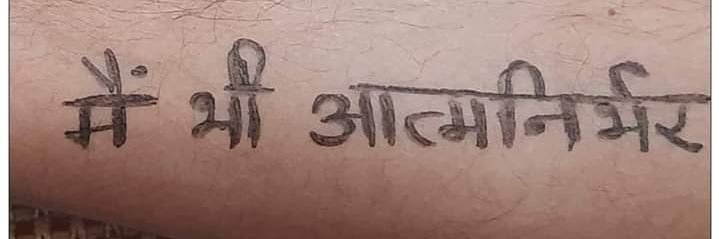 मैं भी आत्मनिर्भर